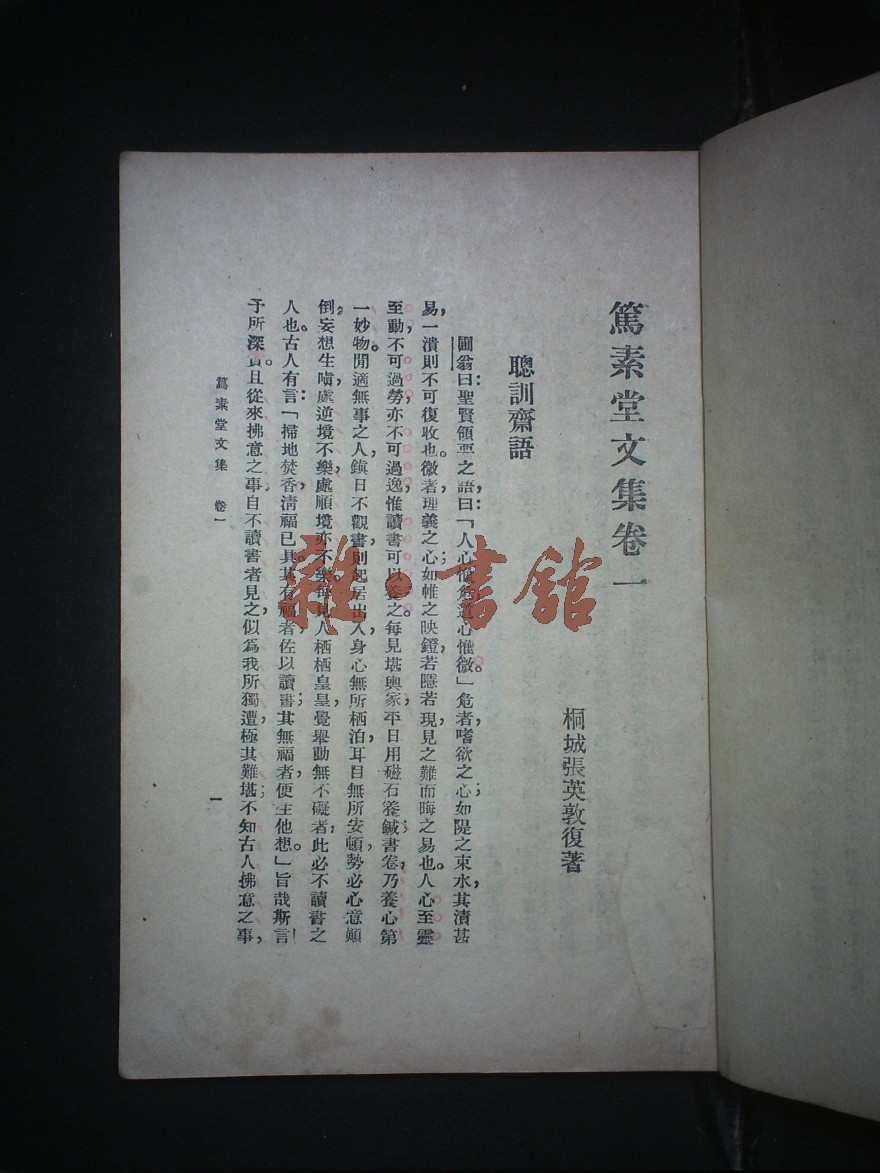 篤素堂文集卷一
桐城張英敦復著
聰訓齋語
圃翁曰：聖賢領要之語，曰：「人心惟危，道心惟微。」危者，嗜欲之心，如隄之束水，其潰甚
易，一潰則不可復收也。微者，理義之心，如帷之映鐙，若隱若現，見之難而晦之易也。人心至靈
至動，不可過勞，亦不可過逸，惟讀書可以養之。每見堪輿家，平日用磁石養鍼，書卷乃養心第
一妙物。閒適無事之人，鎮日不觀書，則起居出入，身心無所栖泊，耳目無所安頓，勢必心意顛
倒，妄想生嗔，處逆境不樂，處順境亦不樂。每見人栖栖皇皇，覺舉動無不礙者，此必不讀書之
人也。古人有言：「掃地焚香，清福已具。其有福者，佐以讀書；其無福者，便生他想。」旨哉斯言！
予所深賞。且從來拂意之事，自不讀書者見之，似爲我所獨遭，極其難堪；不知古人拂意之事，
篤素堂文集 卷一
一
雜·書館